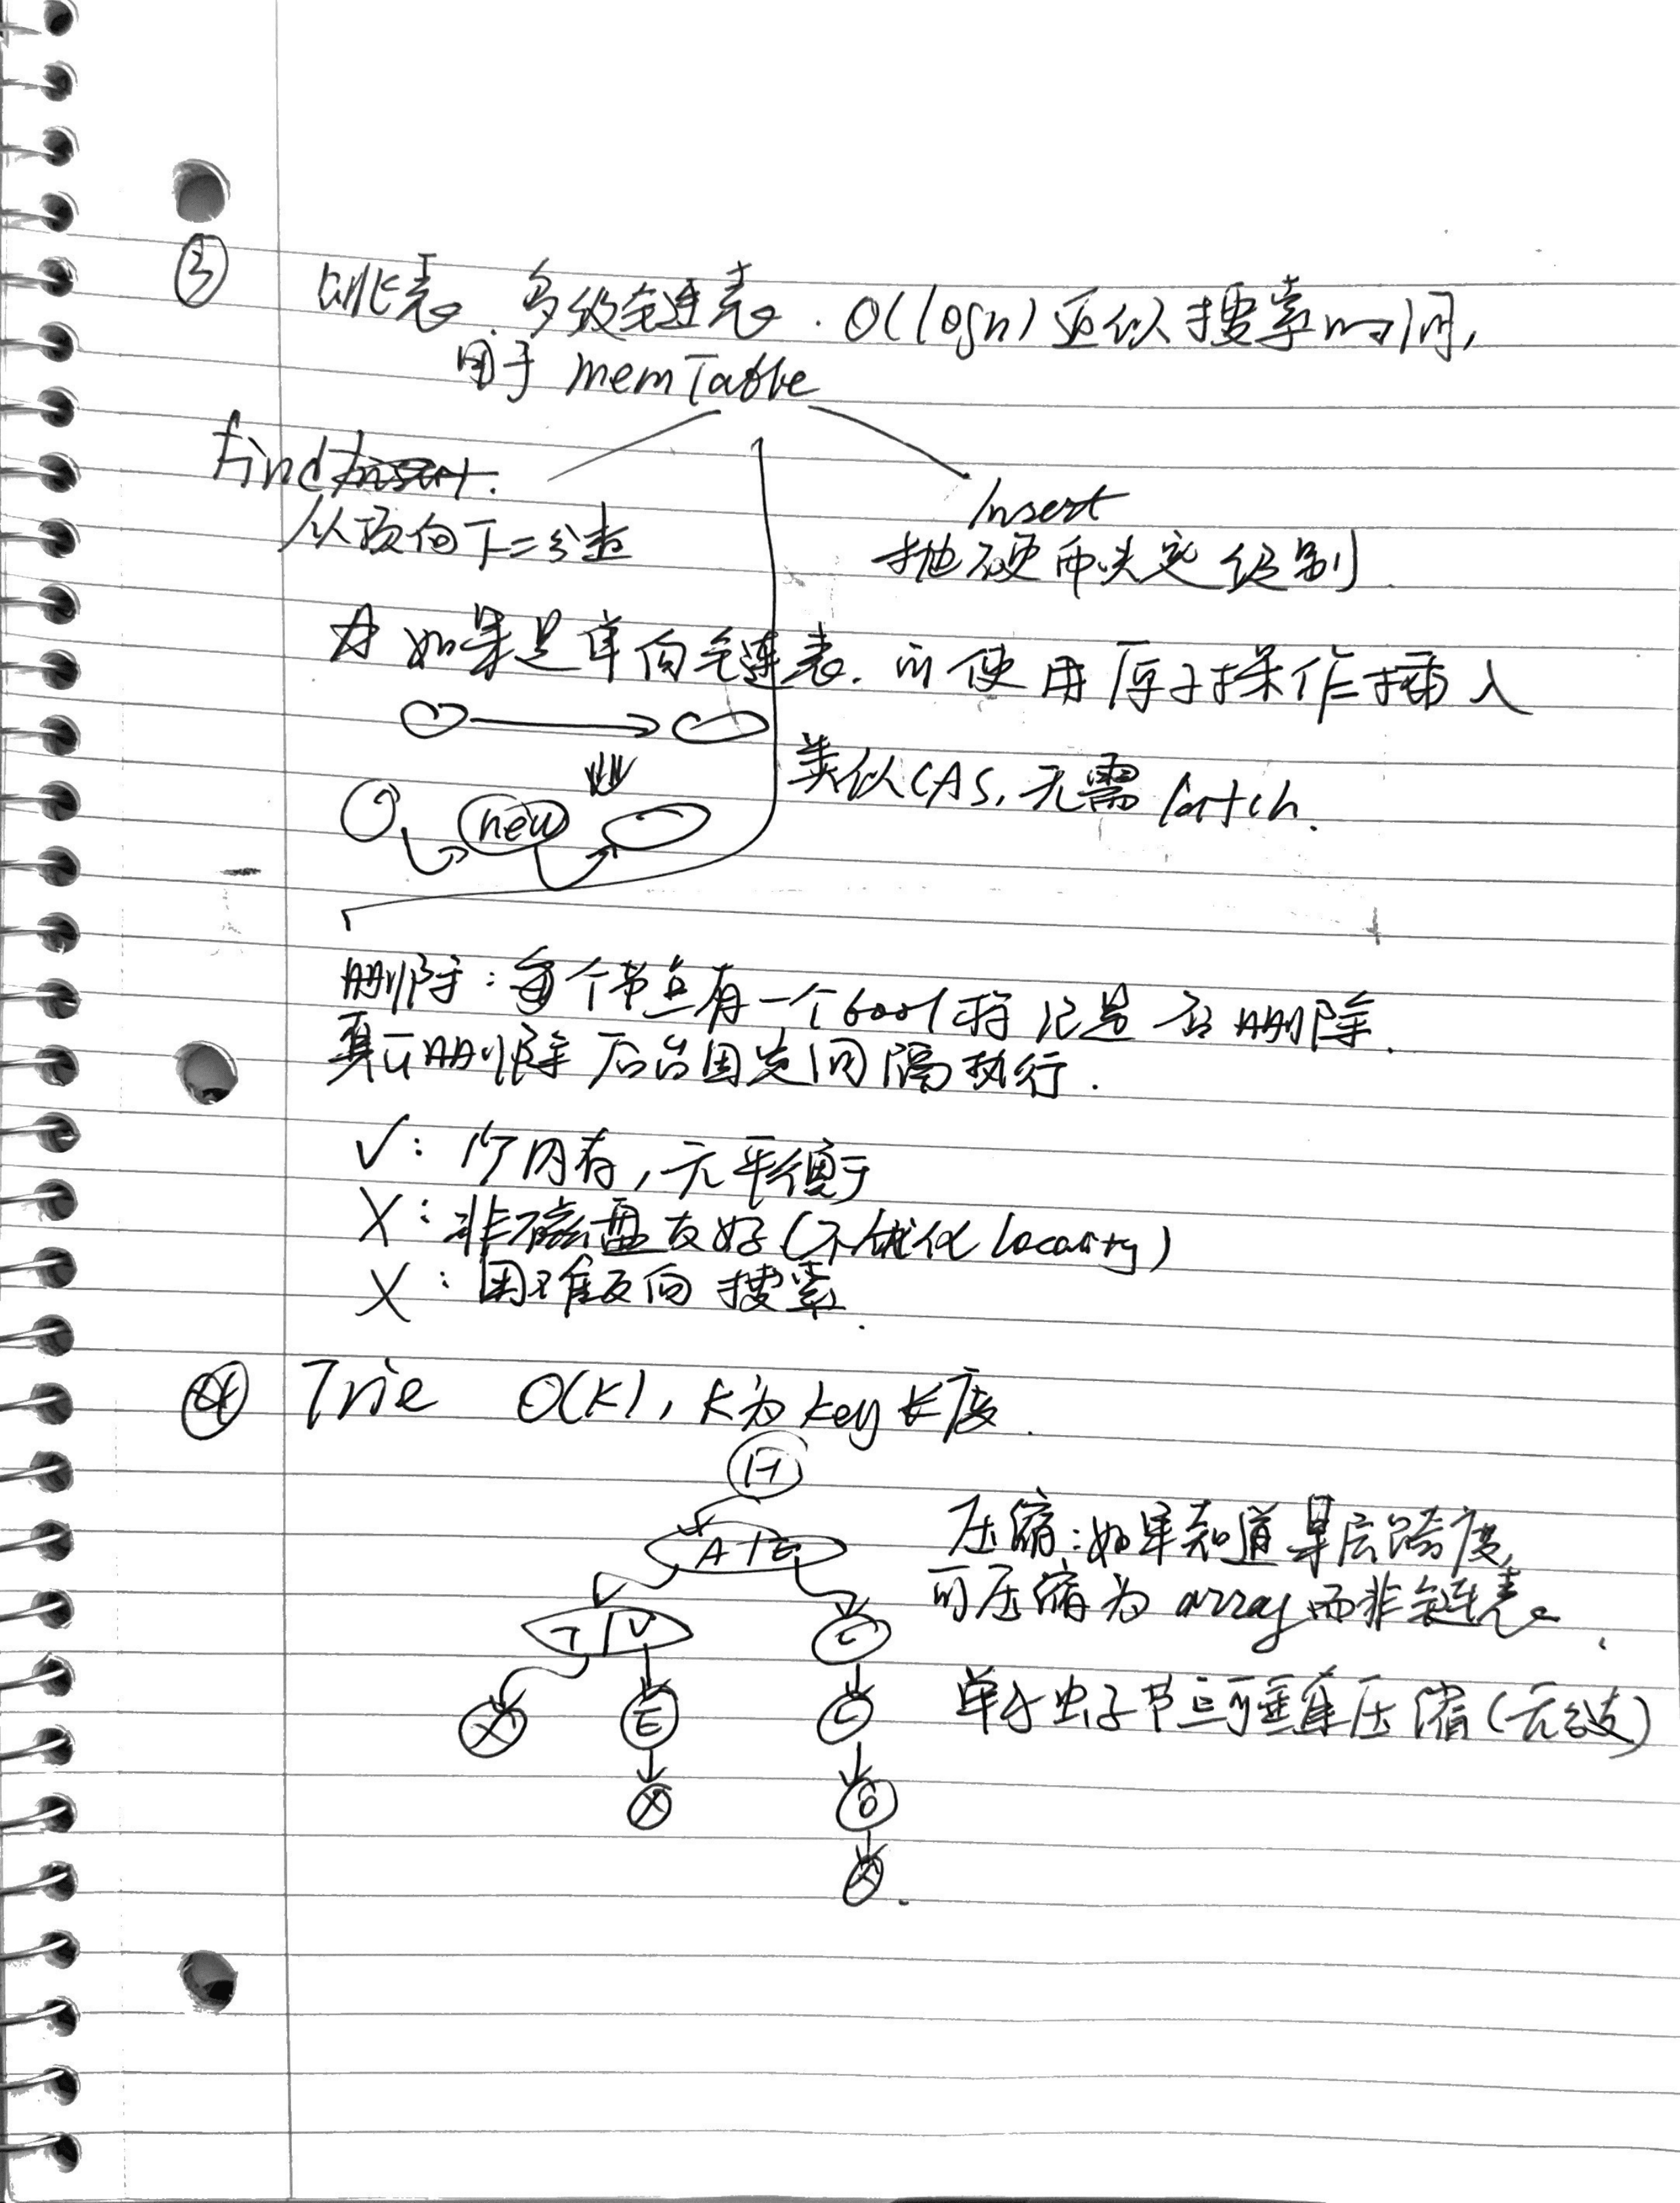 ③ 跳表. 多级链表. O(logn)近似搜索时间,
用于 memTable
find Insert.
从顶向下二分查
Insert
抛硬币决定级别.
如果是单向链表. 可使用原子操作插入
类似CAS, 无需 latch.
new
删除: 每个节点有一个bool标记是否删除.
真正删除 后台固定间隔执行.
✓: 内存, 无平衡
X: 非磁盘友好(不优化 locality)
X: 困难反向搜索.
④ Trie O(K), K为key长度.
H
A | E
压缩: 如果知道某层跨度,
可压缩为 array 而非链表.
T | V L
单 子节点可垂直压缩(无分支)
X E L
X O
X.